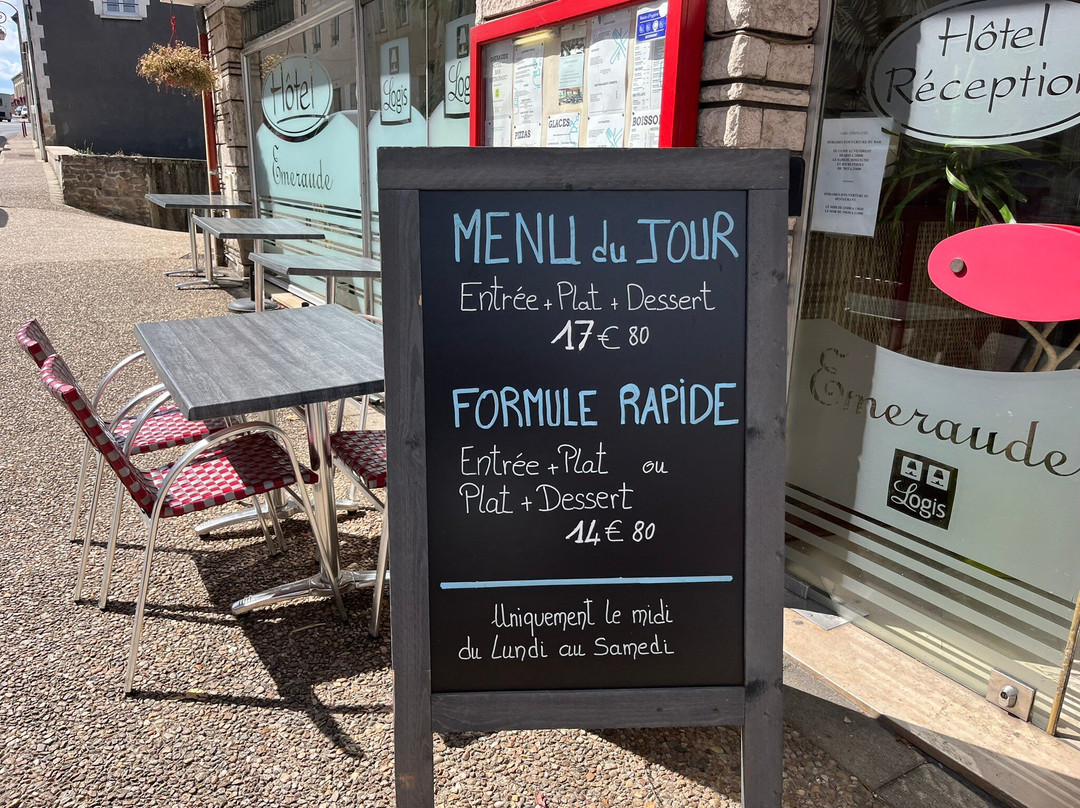 Hôtel
Emeraude
Logis
Logis
PIZZAS
GLACES
BOISSO
Hôtel
Réception
MENU du JOUR
Entrée + Plat + Dessert
17€80
FORMULE RAPIDE
Entrée + Plat ou
Plat + Dessert
14€80
Uniquement le midi
du Lundi au Samedi
Emeraude
Logis